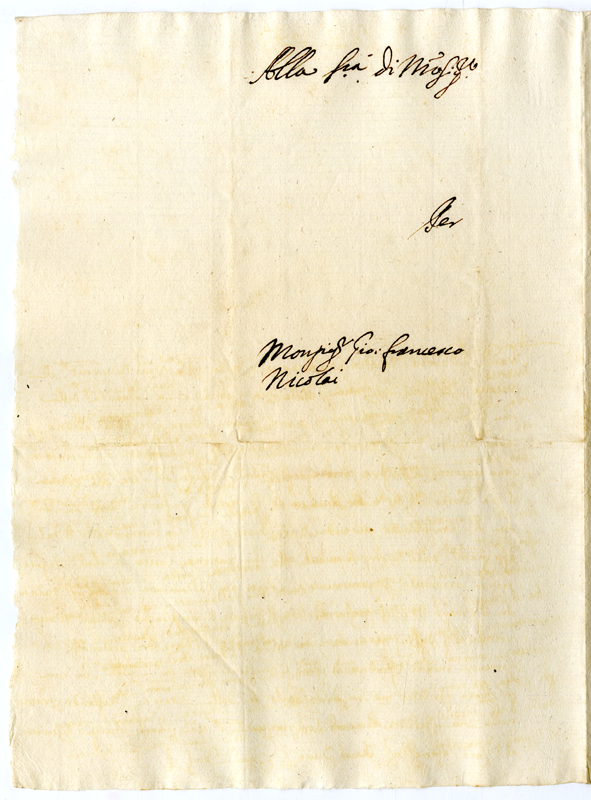 Alla Srà di Mosigr
Per
Monsigr Gio: francesco
Nicolai